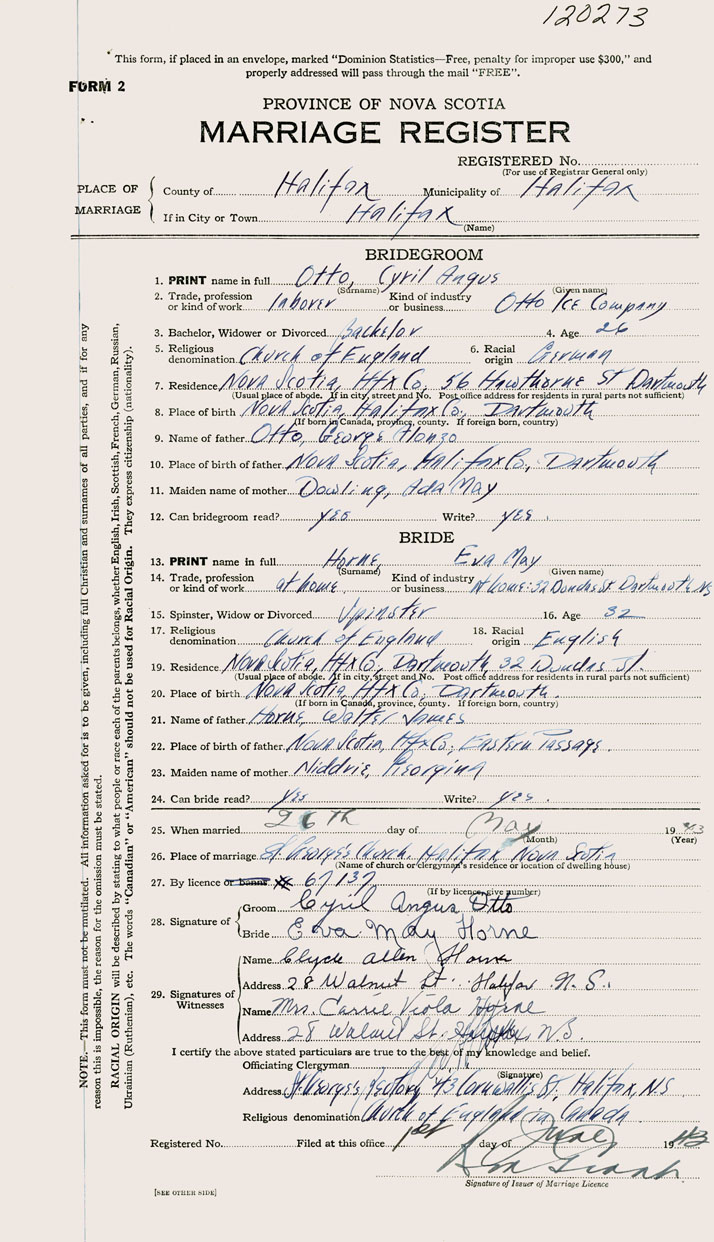 120273
This form, if placed in an envelope, marked "Dominion Statistics—Free, penalty for improper use $300," and
properly addressed will pass through the mail "FREE".
FORM 2
PROVINCE OF NOVA SCOTIA
MARRIAGE REGISTER
REGISTERED No.
(For use of Registrar General only)
PLACE OF MARRIAGE
County of Halifax Municipality of Halifax
If in City or Town Halifax
(Name)
BRIDEGROOM
1. PRINT name in full Otto, Cyril Angus
(Surname) (Given name)
2. Trade, profession or kind of work laborer Kind of industry or business Otto Ice Company
3. Bachelor, Widower or Divorced Bachelor 4. Age 26
5. Religious denomination Church of England 6. Racial origin German
7. Residence Nova Scotia, Hfx Co, 56 Hawthorne St Dartmouth
(Usual place of abode. If in city, street and No. Post office address for residents in rural parts not sufficient)
8. Place of birth Nova Scotia, Halifax Co, Dartmouth
(If born in Canada, province, county. If foreign born, country)
9. Name of father Otto, George Alonzo
10. Place of birth of father Nova Scotia, Halifax Co, Dartmouth
11. Maiden name of mother Dowling, Ada May
12. Can bridegroom read? yes Write? yes
BRIDE
13. PRINT name in full Horne, Eva May
(Surname) (Given name)
14. Trade, profession or kind of work at home Kind of industry or business At home: 32 Dundas St Dartmouth NS
15. Spinster, Widow or Divorced Spinster 16. Age 32
17. Religious denomination Church of England 18. Racial origin English
19. Residence Nova Scotia, Hfx Co, Dartmouth 32 Dundas St.
(Usual place of abode. If in city, street and No. Post office address for residents in rural parts not sufficient)
20. Place of birth Nova Scotia, Hfx Co; Dartmouth.
(If born in Canada, province, county. If foreign born, country)
21. Name of father Horne, Walter James
22. Place of birth of father Nova Scotia, Hfx Co; Eastern Passage.
23. Maiden name of mother Georgina
24. Can bride read? yes Write? yes.
25. When married 26th day of May 1943
(Month) (Year)
26. Place of marriage St. George's Church, Halifax, Nova Scotia
(Name of church or clergyman's residence or location of dwelling house)
27. By licence or banns 67137
(If by licence, give number)
28. Signature of
Groom Cyril Angus Otto
Bride Eva May Horne
29. Signatures of Witnesses
Name Clyde Allen Horne
Address 28 Walnut St. Halifax N.S.
Name Mrs. Carrie Viola Horne
Address 28 Walnut St. Halifax, N.S.
I certify the above stated particulars are true to the best of my knowledge and belief.
Officiating Clergyman
(Signature)
Address St. George's Rectory 43 Cornwallis St, Halifax, N.S
Religious denomination Church of England in Canada
Registered No. Filed at this office 1st day of June 1943
Signature of Issuer of Marriage Licence
[SEE OTHER SIDE]
NOTE.—This form must not be mutilated. All information asked for is to be given, including full Christian and surnames of all parties, and if for any
reason this is impossible, the reason for the omission must be stated.
RACIAL ORIGIN will be described by stating to what people or race each of the parents belongs, whether English, Irish, Scottish, French, German, Russian,
Ukrainian (Ruthenian), etc. The words "Canadian" or "American" should not be used for Racial Origin. They express citizenship (nationality).